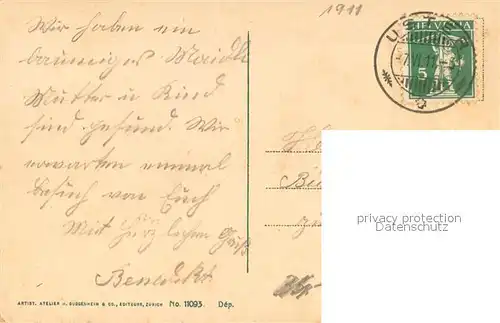 Wir haben ein
1911
HELVETIA
USTER
5
Maidli
Mutter u Kind
sind gesund. Wir
erwarten einmal
Besuch von Euch
Mit herzlichem Gruß
Benedikt
privacy protection
watermark
35,-
ARTIST. ATELIER H. GUGGENHEIM & CO., EDITEURS, ZÜRICH No. 11093. Dép.